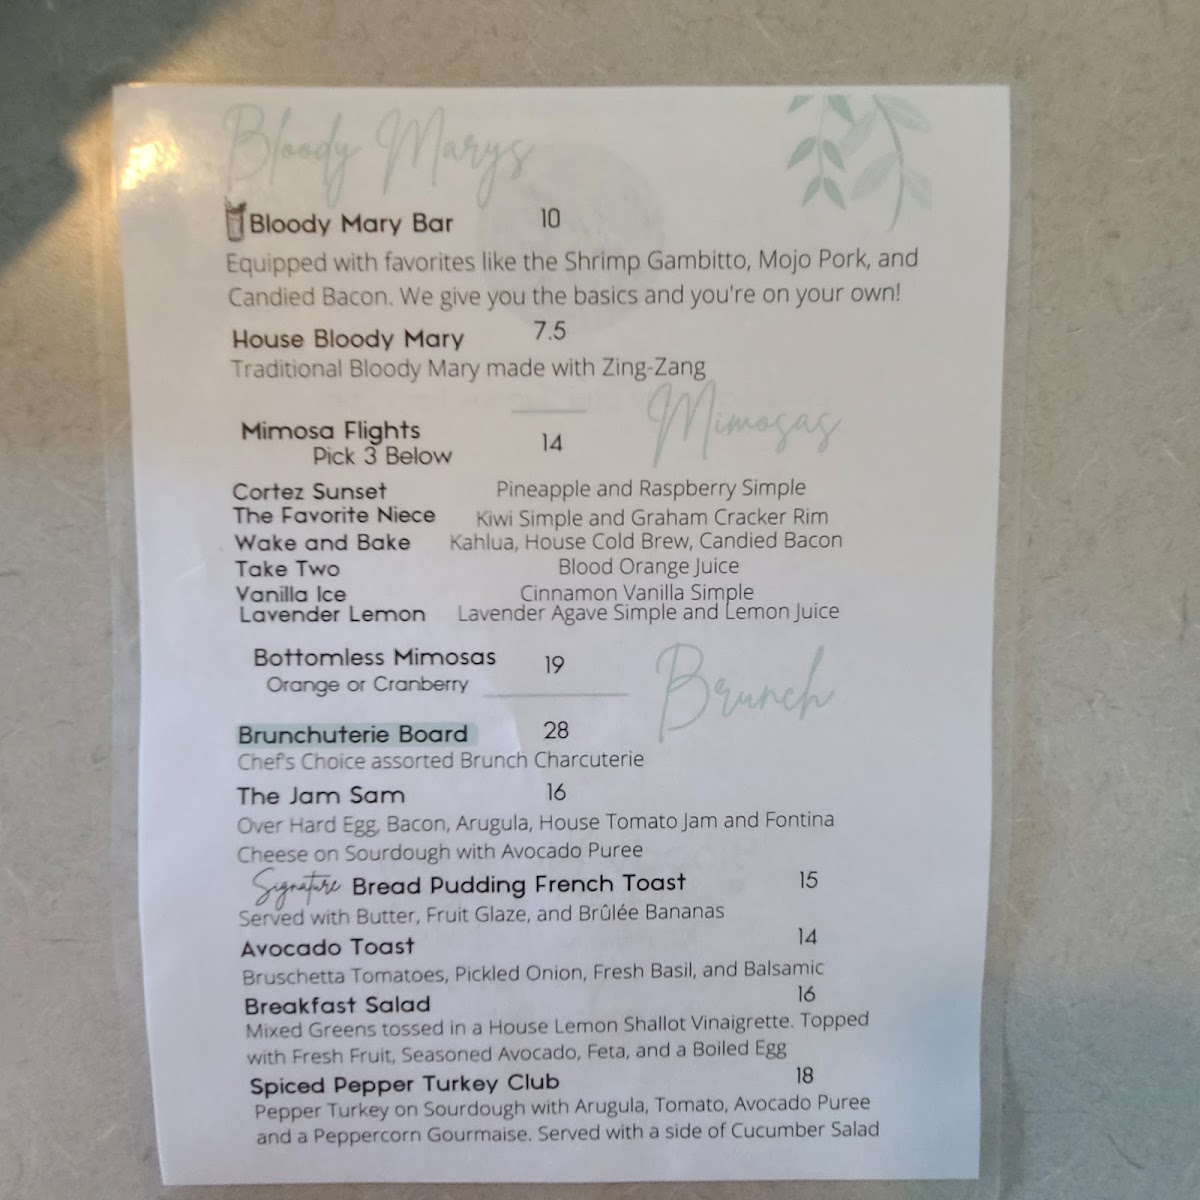 Bloody Marys
Bloody Mary Bar 10
Equipped with favorites like the Shrimp Gambitto, Mojo Pork, and
Candied Bacon. We give you the basics and you're on your own!
House Bloody Mary 7.5
Traditional Bloody Mary made with Zing-Zang
Mimosas
Mimosa Flights 14
Pick 3 Below
Cortez Sunset Pineapple and Raspberry Simple
The Favorite Niece Kiwi Simple and Graham Cracker Rim
Wake and Bake Kahlua, House Cold Brew, Candied Bacon
Take Two Blood Orange Juice
Vanilla Ice Cinnamon Vanilla Simple
Lavender Lemon Lavender Agave Simple and Lemon Juice
Bottomless Mimosas 19
Orange or Cranberry
Brunch
Brunchuterie Board 28
Chef's Choice assorted Brunch Charcuterie
The Jam Sam 16
Over Hard Egg, Bacon, Arugula, House Tomato Jam and Fontina
Cheese on Sourdough with Avocado Puree
Signature Bread Pudding French Toast 15
Served with Butter, Fruit Glaze, and Brûlée Bananas
Avocado Toast 14
Bruschetta Tomatoes, Pickled Onion, Fresh Basil, and Balsamic
Breakfast Salad 16
Mixed Greens tossed in a House Lemon Shallot Vinaigrette. Topped
with Fresh Fruit, Seasoned Avocado, Feta, and a Boiled Egg
Spiced Pepper Turkey Club 18
Pepper Turkey on Sourdough with Arugula, Tomato, Avocado Puree
and a Peppercorn Gourmaise. Served with a side of Cucumber Salad